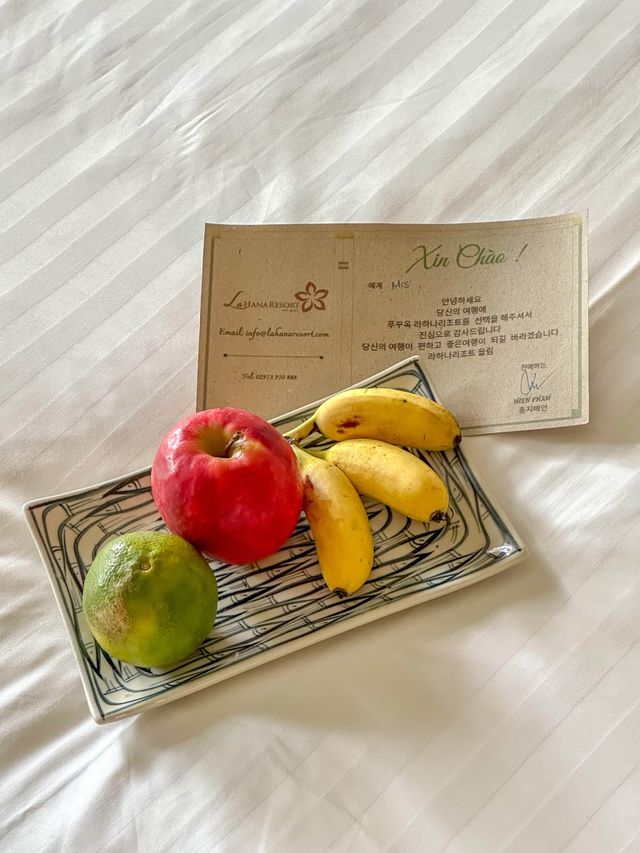 LaHANARESORT
Email: info@lahanaresort.com
Tel: 02973 970 888
Xin Chào !
에게 Mrs
안녕하세요
당신의 여행에
푸꾸옥 라하나리조트를 선택을 해주셔서
진심으로 감사드립니다
당신의 여행이 편하고 좋은여행이 되길 바라겠습니다
라하나리조트 올림
친애하는
HIEN PHAM
총지배인